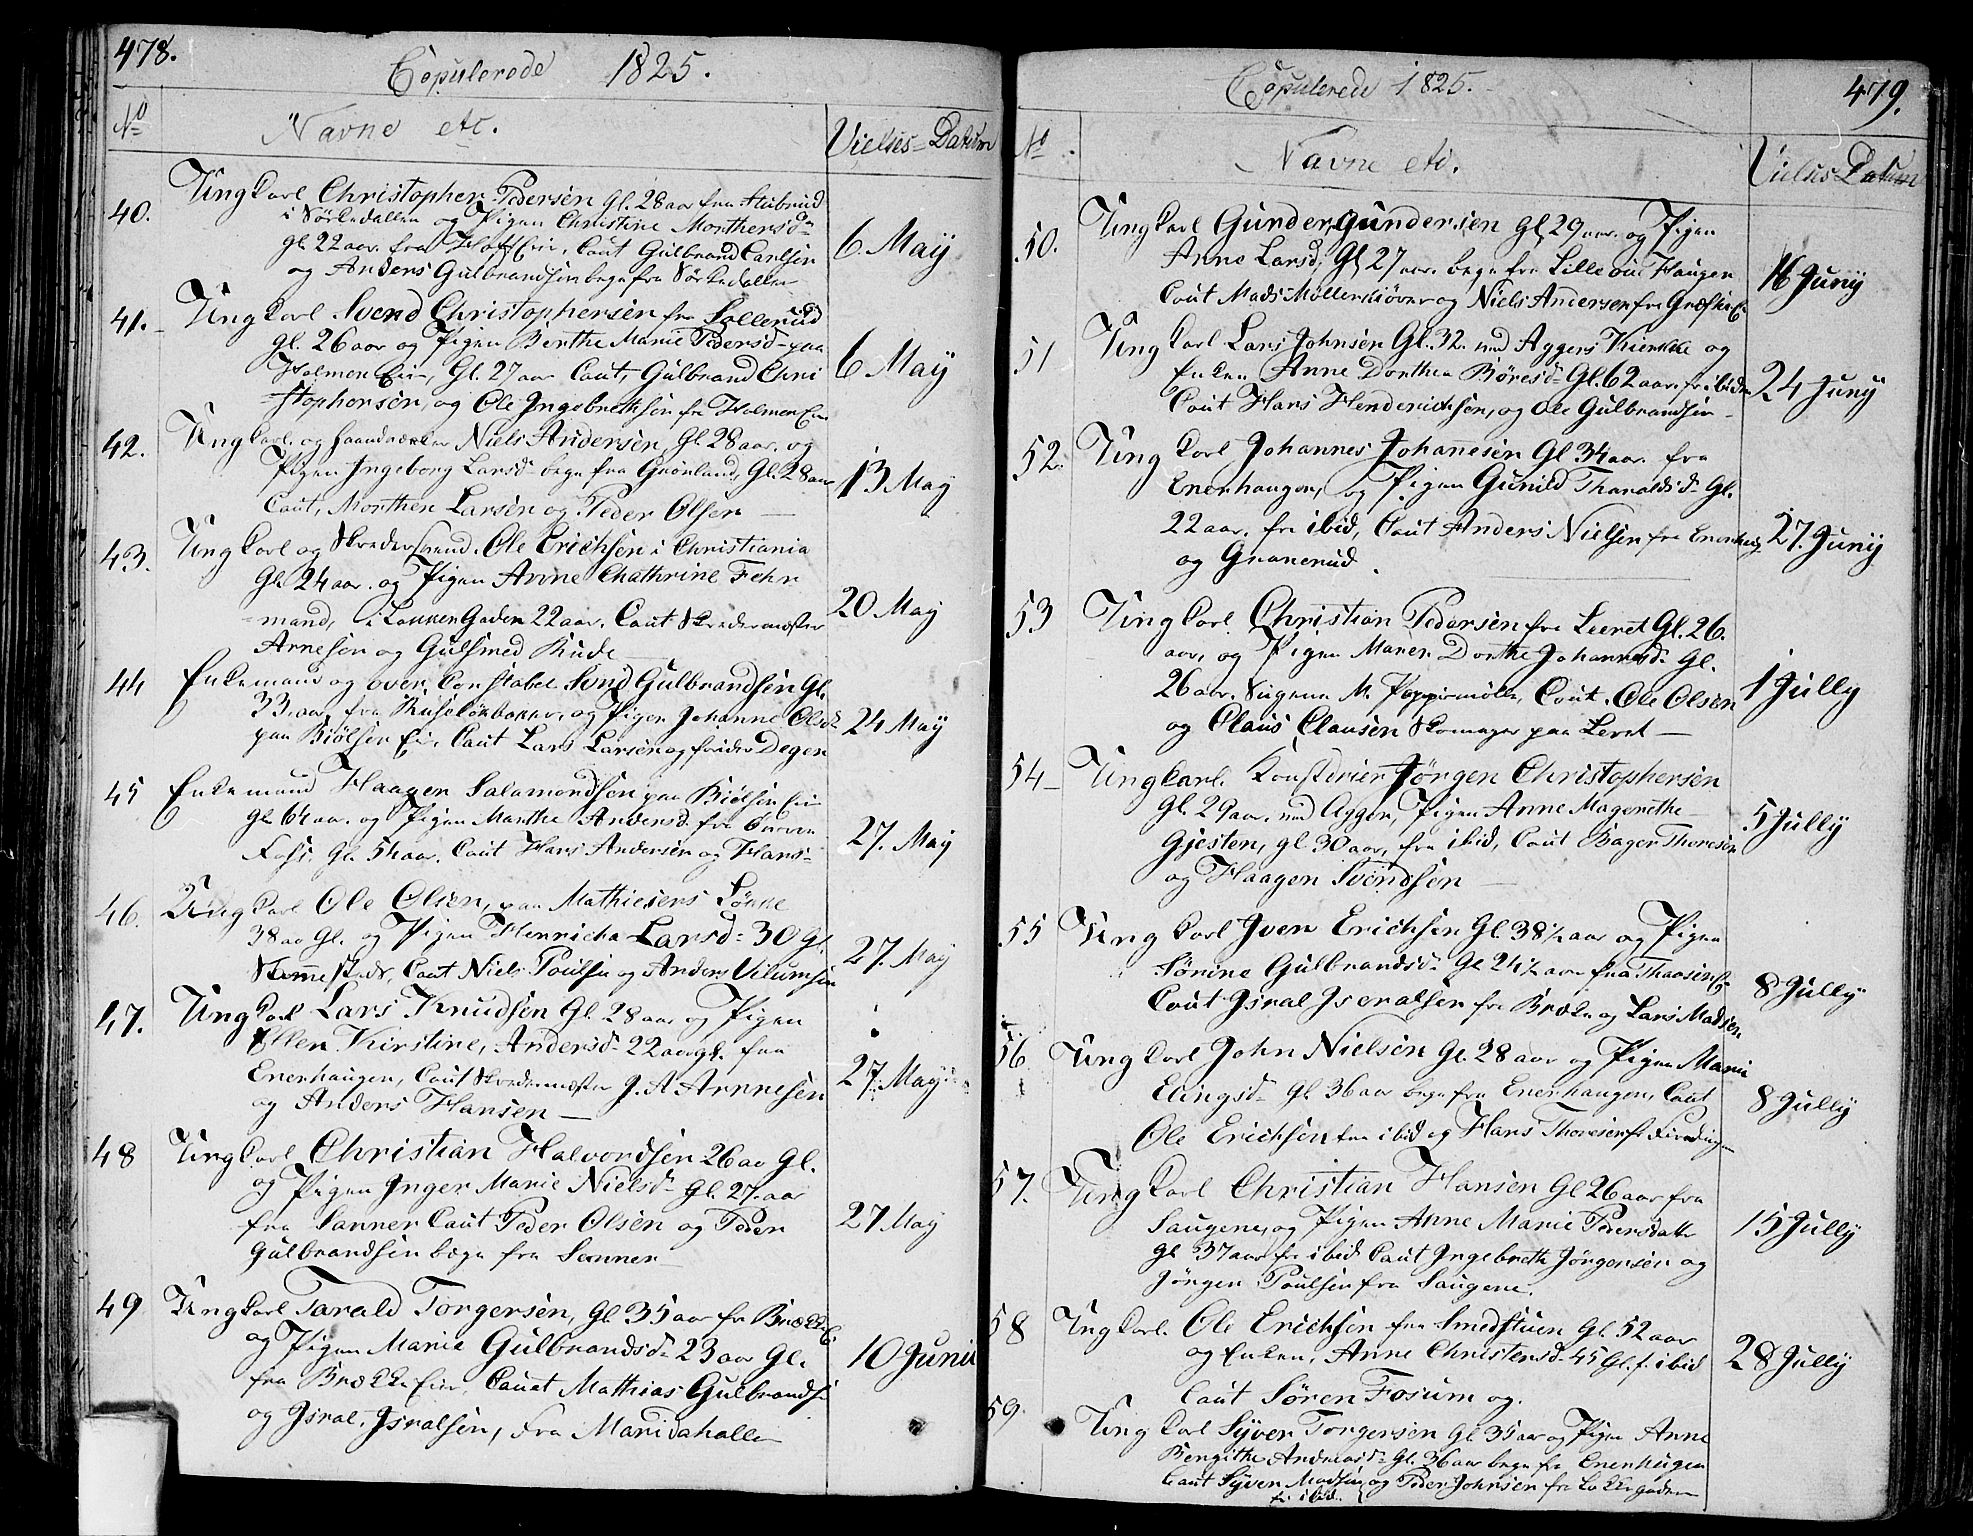 478.
Copulerede 1825.
No Navne etc. Vielses-Datum
40. Ungkarl Christopher Pedersen Gl. 28 aar fra
i Sörkedallen og Pigen Christine Morthensd
gl. 22 aar. fra Eie, Caut Gulbrand Carlsen 6. May
og Anders Gulbrandsen begge fra Sörkedallen
41. Ungkarl Svend Christophersen fra Sollerud
gl. 26 aar og Pigen Birthe Marie Pedersd paa
Holmen Eie, Gl. 27 aar Caut, Gulbrand Chri 6 May
stophersen, og Ole Ingebrethsen fr Holmen Eie
42. Ungkarl og Haandværker Niels Andersen, Gl. 28 aar, og
Pigen Ingeborg Larsd begge fra Grønland, Gl. 28 aar 13 May
Caut, Morthen Larsen og Peder Olsen
43. Ungkarl og Skredersvend. Ole Erichsen i Christiania
Gl. 24 aar. og Pigen Anne Chathrine Fehr
mand, i Lakken Gaden 22 aar. Caut Skredermester 20. May
Arnesen og Gulsmed Kude
44 Enkemand og over Constabel Svend Gulbrandsen Gl.
33 aar, fra Ruseløkbakken, og Pigen Johanne Olsd 24 May
paa Biølsen Eie, Caut Lars Larsen og Degen
45 Enkemand Haagen Salamondsen paa Biølsen Eie
gl 64 aar. og Pigen Marthe Andersd. fra 27. May
Foss. Gl. 54 aar. Caut Hans Andersen og Hans
46. Ungkarl Ole Olsen, paa Mathiesens Løkke
38 aar Gl. og Pigen Henricha Larsd: 30 Gl. 27. May
Caut Niels Poulsen og Anders Vilumsen
47. Ungkarl Lars Knudsen Gl. 28 aar og Pigen
Ellen Kirstine, Andersd 22 aar gl. fra
Enerhaugen, Caut Skredermester J. A Arnnesen 27. May
og Anders Hansen
48 Ungkarl Christian Halvordsen 26 aar Gl.
og Pigen Inger Marie Nielsd Gl. 27. aar
fra Sanner Caut Peder Olsen og Peder 27 May
Gulbrandsen begge fra Sanner
49 Ungkarl Tarald Torgersen, Gl. 35 aar fr Brække E.
og Pigen Marie Gulbrandsd 23 aar Gl. 10 Junii
fra Brække Eier, Cauat Mathias Gulbrandsen
og Isral. Isralsen, fra Maridahallen
479.
Copulerede 1825.
No Navne etc. Vielses Datum
50. Ungkarl Gunder Gundersen Gl 29 aar. og Pigen
Anne Larsd, Gl 27 aar. begge fra Lille Haugen 16 Juny
Caut Mads Möllerskiøver og Niels Andersen fra
51 Ungkarl Lars Johnsen Gl. 32. ved Aggers Kierkke og
Enken Anne Dorthea Börresd Gl. 62 aar. fr ibid 24 Juny
Caut Hans Henderichsen, og Ole Gulbrandsen
52. Ungkarl Johannes Johanesen Gl 34 aar. fra
Enerhaugen, og Pigen Gunild Tharaldsd Gl.
22 aar. fra ibid, Caut Anders Nielsen fra Enerhaug 27. Juny
og Granerud.
53 Ungkarl Christian Pedersen fra Leeret Gl. 26.
aar, og Pigen Maren Dorthe Johannesd Gl.
26 aar. Sugene M. Pappirmølle, Caut. Ole Olsen 1 Jully
og Claus Clausen Skomager paa Leret
54 Ungkarl. Jörgen Christophersen
Gl. 29 aar. ved Agger, Pigen Anne Magerethe
Gjesten, gl. 30 aar, fra ibid, Caut Bager Thoresen 5 Jully
og Haagen Svendsen
55 Ungkarl Iven Erichsen Gl 38 ½ aar og Pigen
Sörine Gulbrandsd Gl 24 ½ aar fra Thaasen E. 8 Jully
Caut Isral Iseralsen fra Brække og Lars Madsen
56 Ungkarl John Nielsen Gl. 28 aar og Pigen Marie
Elingsd Gl 36 aar begge fra Enerhaugen, Caut 8 Jully
Ole Erichsen fra ibid og Hans Thoresen fr
57. Ungkarl Christian Hansen Gl 26 aar fra
Saugene, og Pigen Anne Marie Pedersdatter 15 Jully
gl 37 aar fr ibid Caut Ingebreth Jörgensen og
Jörgen Poulsen fra Saugene.
58 Ungkarl. Ole Erichsen fra Smedstuen Gl. 52 aar
og Enken, Anne Christensd 45 Gl. f. ibid 28 Jully
Caut Sören Fosum og.
59. Ungkarl Syver Torgersen Gl 35 aar og Pigen Anne
Bengithe Andreasd Gl. 36 aar begge fra Enerhugen
Caut Syver Madsen og Peder Johnsen fra Lakkegaden
fr ibid.